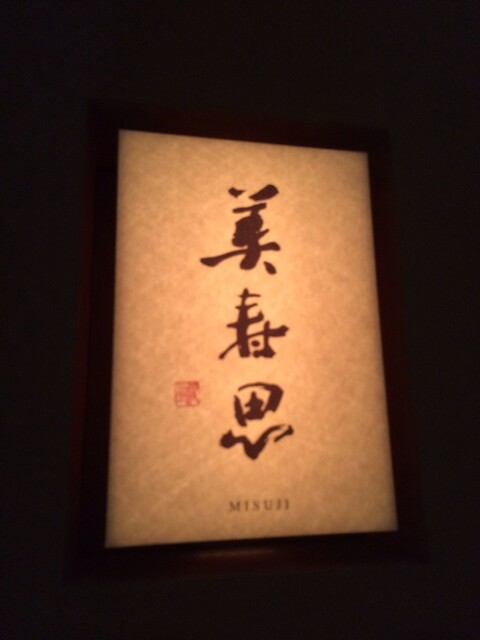 美寿思
MISUJI